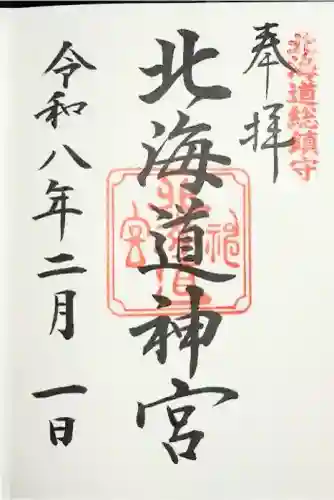 北海道総鎮守
奉拝
北海道神宮
令和八年二月一日